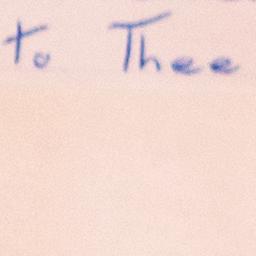 to Thee